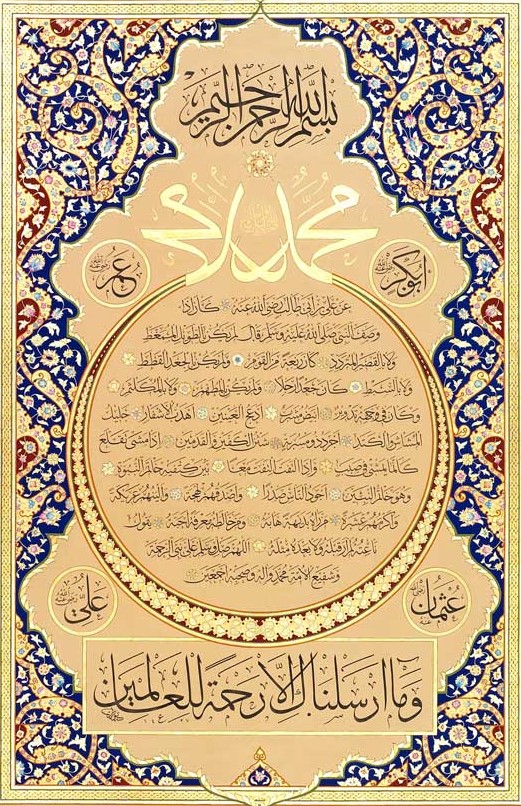 بسم الله الرحمن الرحيم
محمد
ابوبكر رضي الله عنه
عمر رضي الله عنه
عن علي بن ابي طالب رضي الله عنه كان اذا
وصف النبي صلى الله عليه وسلم قال لم يكن بالطويل الممغط
ولا بالقصير المتردد وكان ربعة من القوم ولم يكن بالجعد القطط
ولا بالسبط كان جعدا رجلا ولم يكن بالمطهم ولا بالمكلثم
وكان في وجهه تدوير ابيض مشرب ادعج العينين اهدب الاشفار جليل
المشاش والكتد اجرد ذو مسربة شثن الكفين والقدمين اذا مشى تقلع
كانما يمشي في صبب واذا التفت التفت معا بين كتفيه خاتم النبوة
وهو خاتم النبيين اجود الناس صدرا واصدقهم لهجة والينهم عريكة
واكرمهم عشرة من راه بديهة هابه ومن خالطه معرفة احبه يقول
ناعته لم ار قبله ولا بعده مثله اللهم صل وسلم على نبي الرحمة
وشفيع الامة محمد وآله وصحبه اجمعين
عثمان رضي الله عنه
علي رضي الله عنه
وما ارسلناك الا رحمة للعالمين